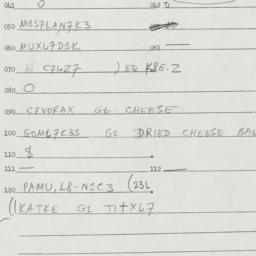 042 0 0
050 M1S7LAN7K3
060 MUXL7D1K 061 —
070 C71.27 ) EQ K8E.2
080 O
090 C7VORAX GL CHEESE
100 GOML7K3S GL DRIED CHEESE BAL
110 $ .
111 — 112 —
120 PAMU, L8-N1C3 (23L.
((KATKE GL T1+XL7